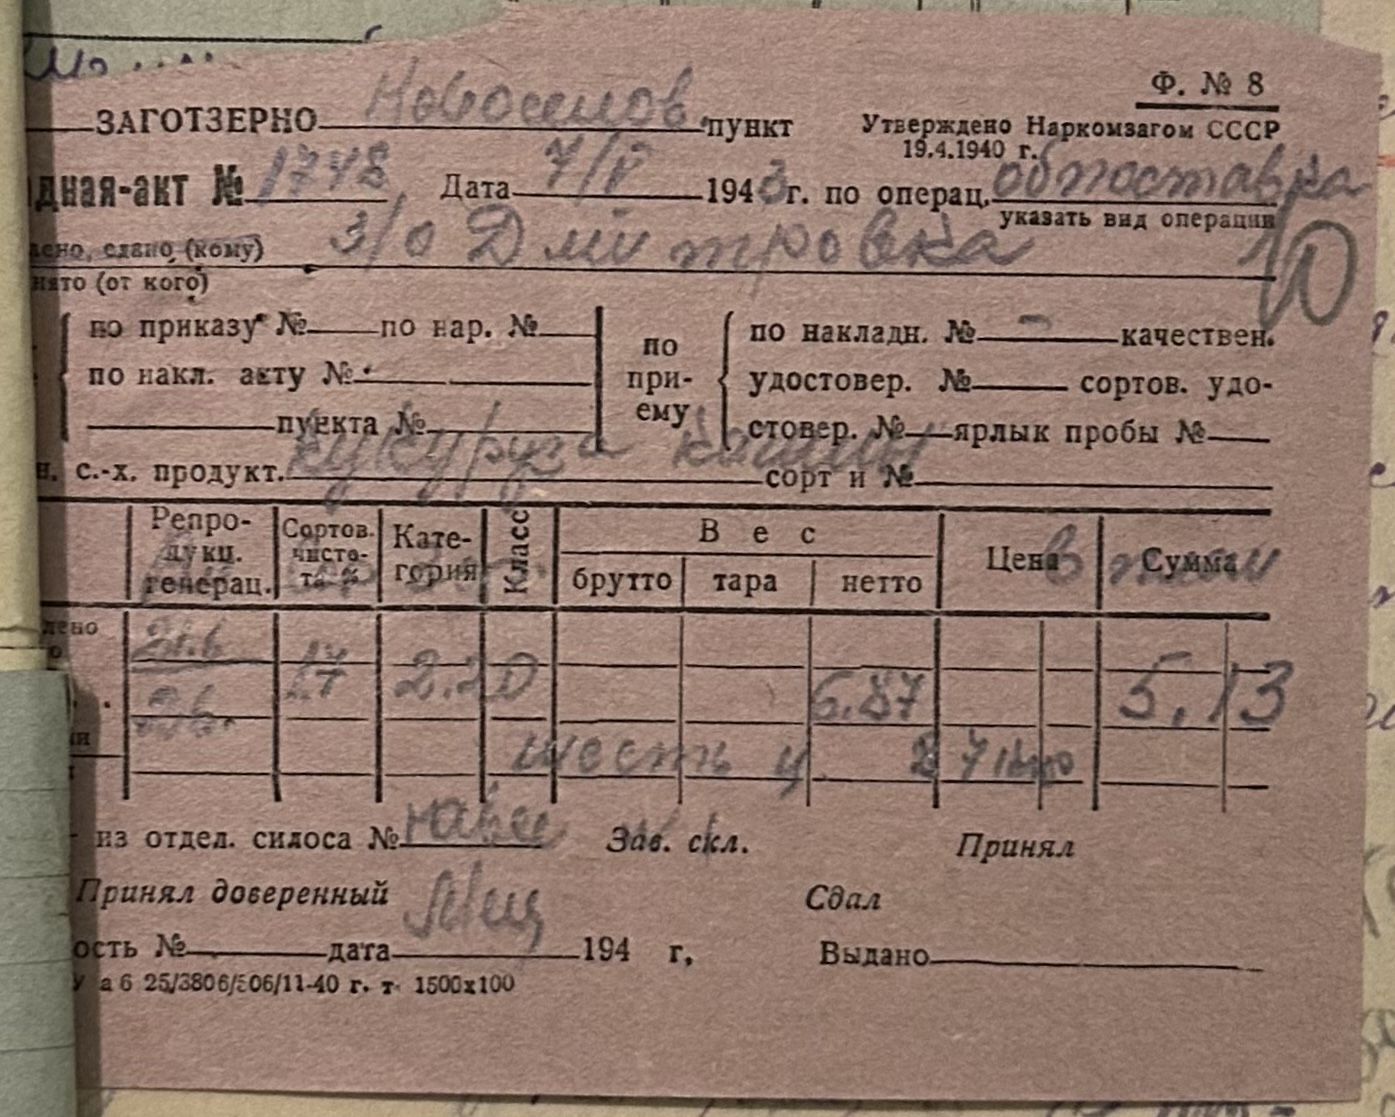 Ф. № 8
ЗАГОТЗЕРНО Новоселов. пункт
Утверждено Наркомзагом СССР
19.4.1940 г.
дная-акт № 1748 Дата 7/V 1943 г. по операц. обпоставка
указать вид операции
ено, сдано (кому) з/о Дмитровка
10
нято (от кого)
по приказу № по нар. №
по накл. акту №
пункта №
по при-ему
по накладн. № - качествен.
удостовер. № сортов. удо-
стовер. № ярлык пробы №
н. с.-х. продукт. кукуруза сорт и №
Репро-дукц. генерац. Сортов. чисто-та % Кате-гория Класс Вес Цена Сумма
брутто тара нетто
в том
лено
17 2.20 6.87 5.13
шесть ц 87 кило
из отдел. силоса № Зав. скл. Принял
Принял доверенный Сдал
ость № дата 194 г. Выдано
а 6 25/3806/506/11-40 г. т. 1500х100